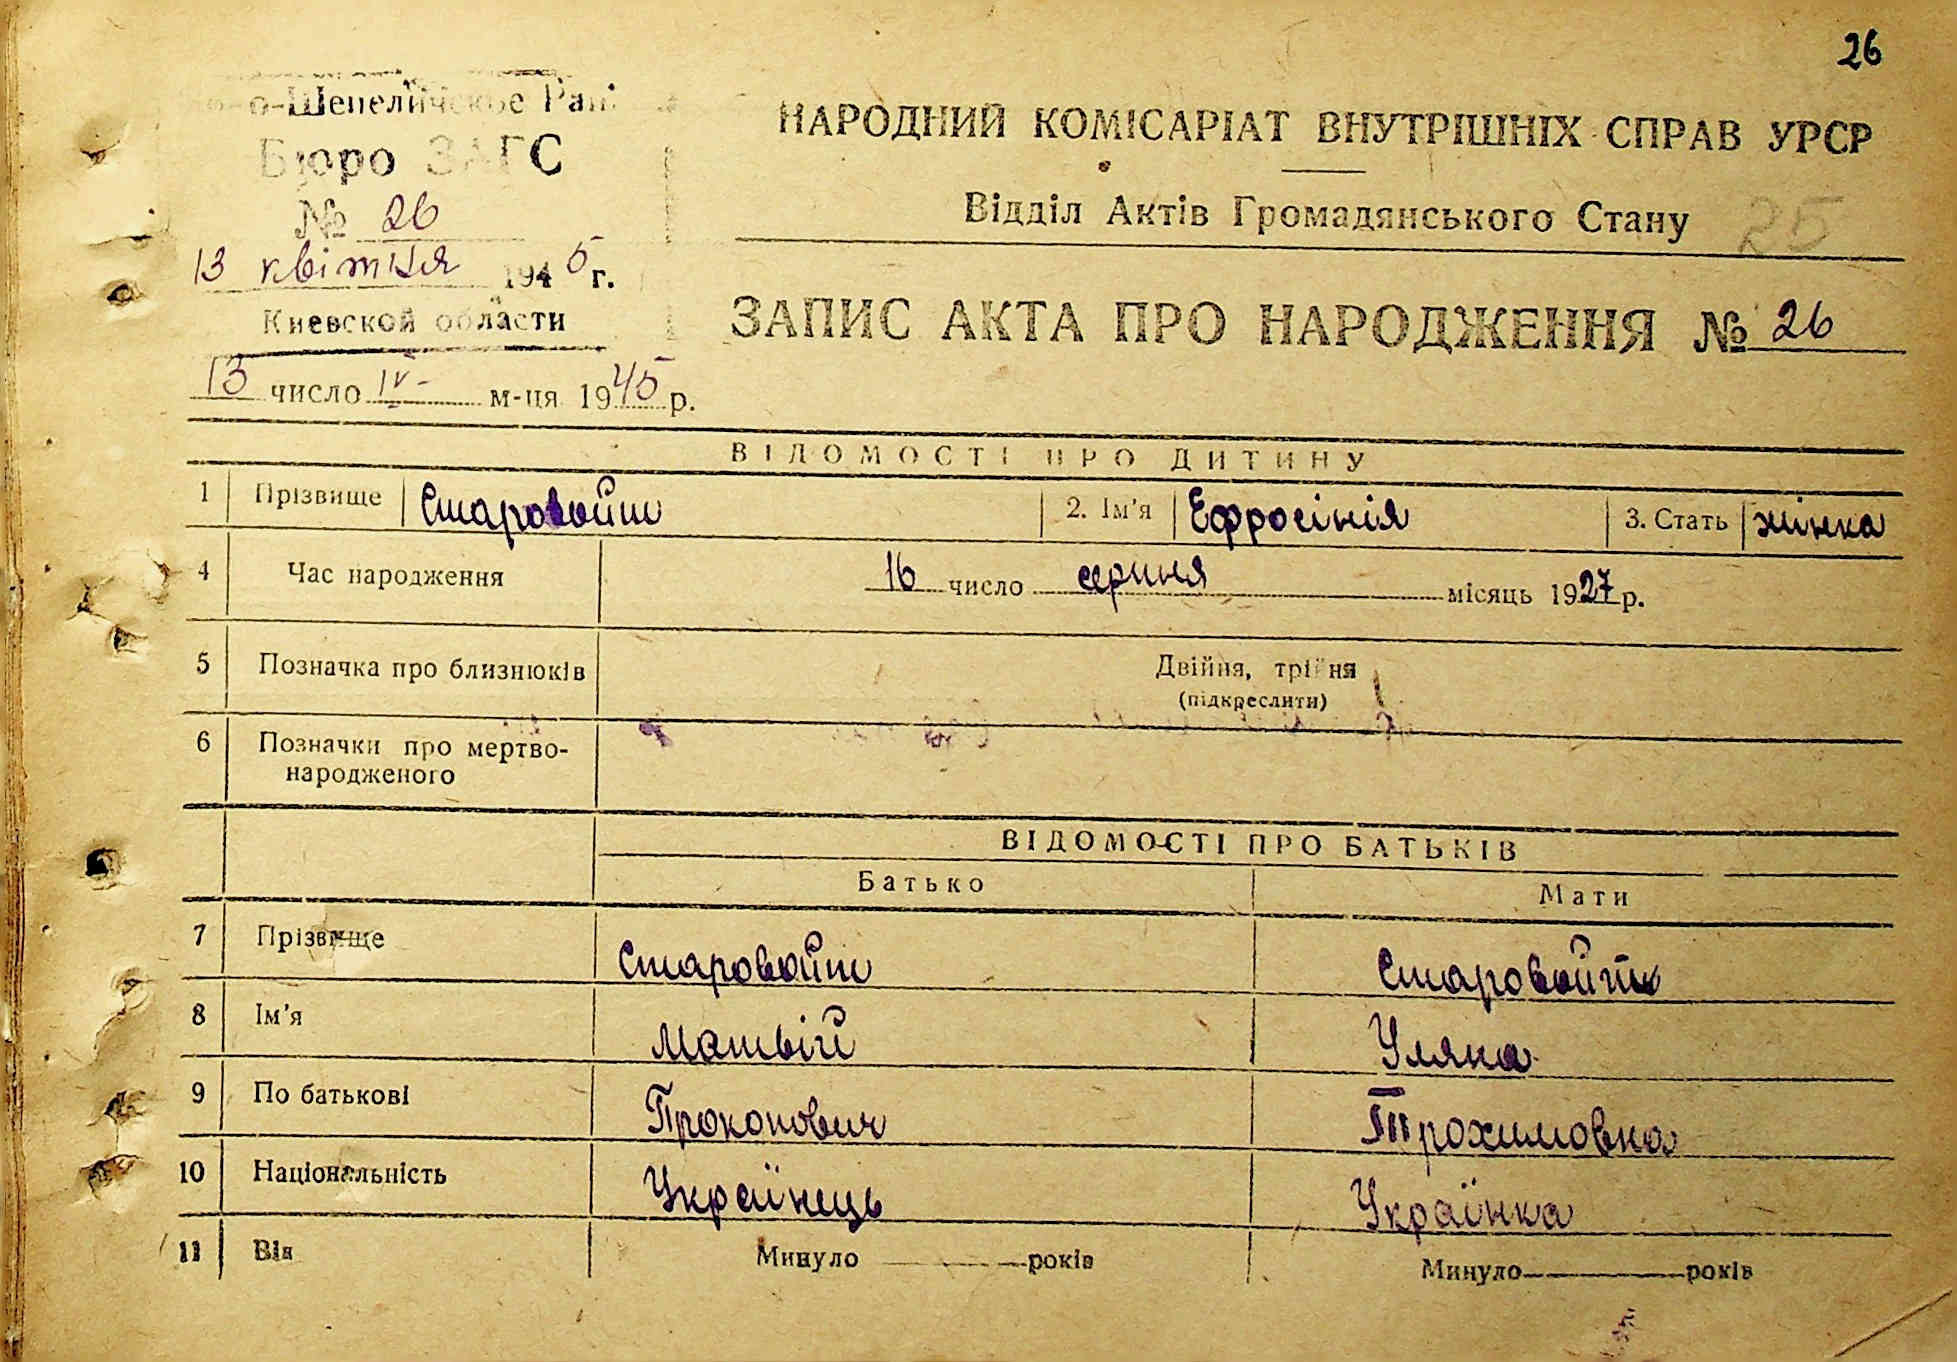 26
о-Шепелическое Рай
Бюро ЗАГС
№ 26
13 квітня 1945 г.
Киевской области
13 число IV м-ця 1945 р.
НАРОДНИЙ КОМІСАРІАТ ВНУТРІШНІХ СПРАВ УРСР
Відділ Актів Громадянського Стану
25
ЗАПИС АКТА ПРО НАРОДЖЕННЯ № 26
ВІДОМОСТІ ПРО ДИТИНУ
1 Прізвище Старовойт 2. Ім'я Ефросінія 3. Стать жінка
4 Час народження 16 число серпня місяць 1927 р.
5 Позначка про близнюків Двійня, трійня
(підкреслити)
6 Позначки про мертво-
народженого
ВІДОМОСТІ ПРО БАТЬКІВ
Батько Мати
7 Прізвище Старовойт Старовойт
8 Ім'я Матвій Уляна
9 По батькові Прокопович Трохимовна
10 Національність Українець Українка
11 Вік Минуло років Минуло років